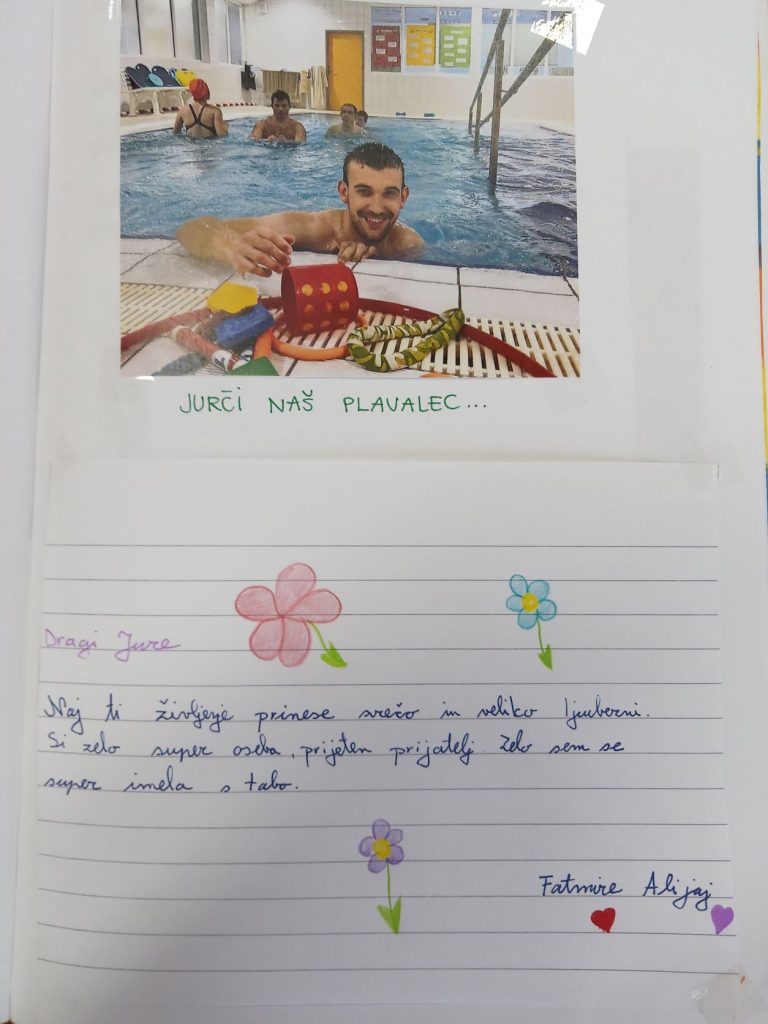 JURČI NAŠ PLAVALEC...
Dragi Jure
Naj ti življenje prinese srečo in veliko ljubezni.
Si zelo super oseba, prijeten prijatelj. Zelo sem se
super imela s tabo.
Fatmire Alijaj